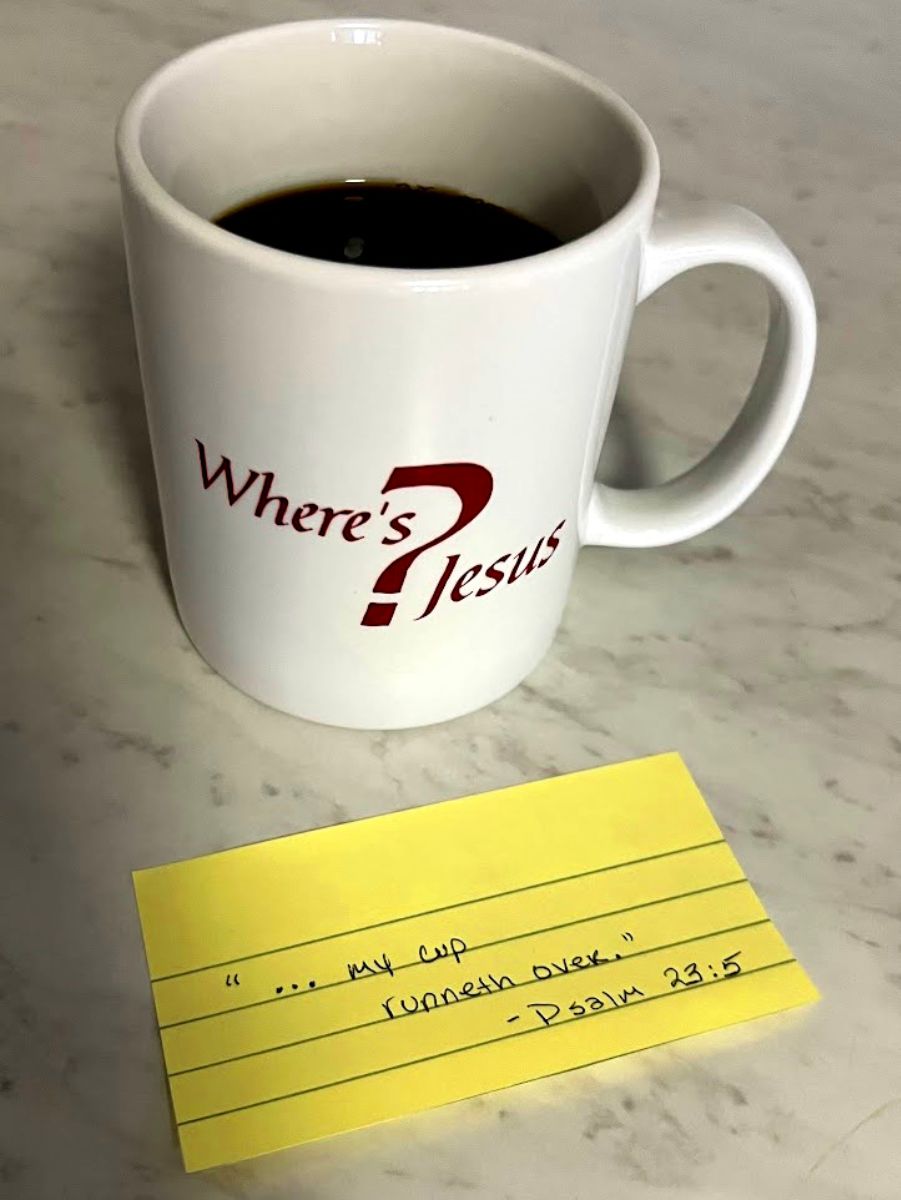 Where's ? Jesus
"... my cup
runneth over."
- Psalm 23:5